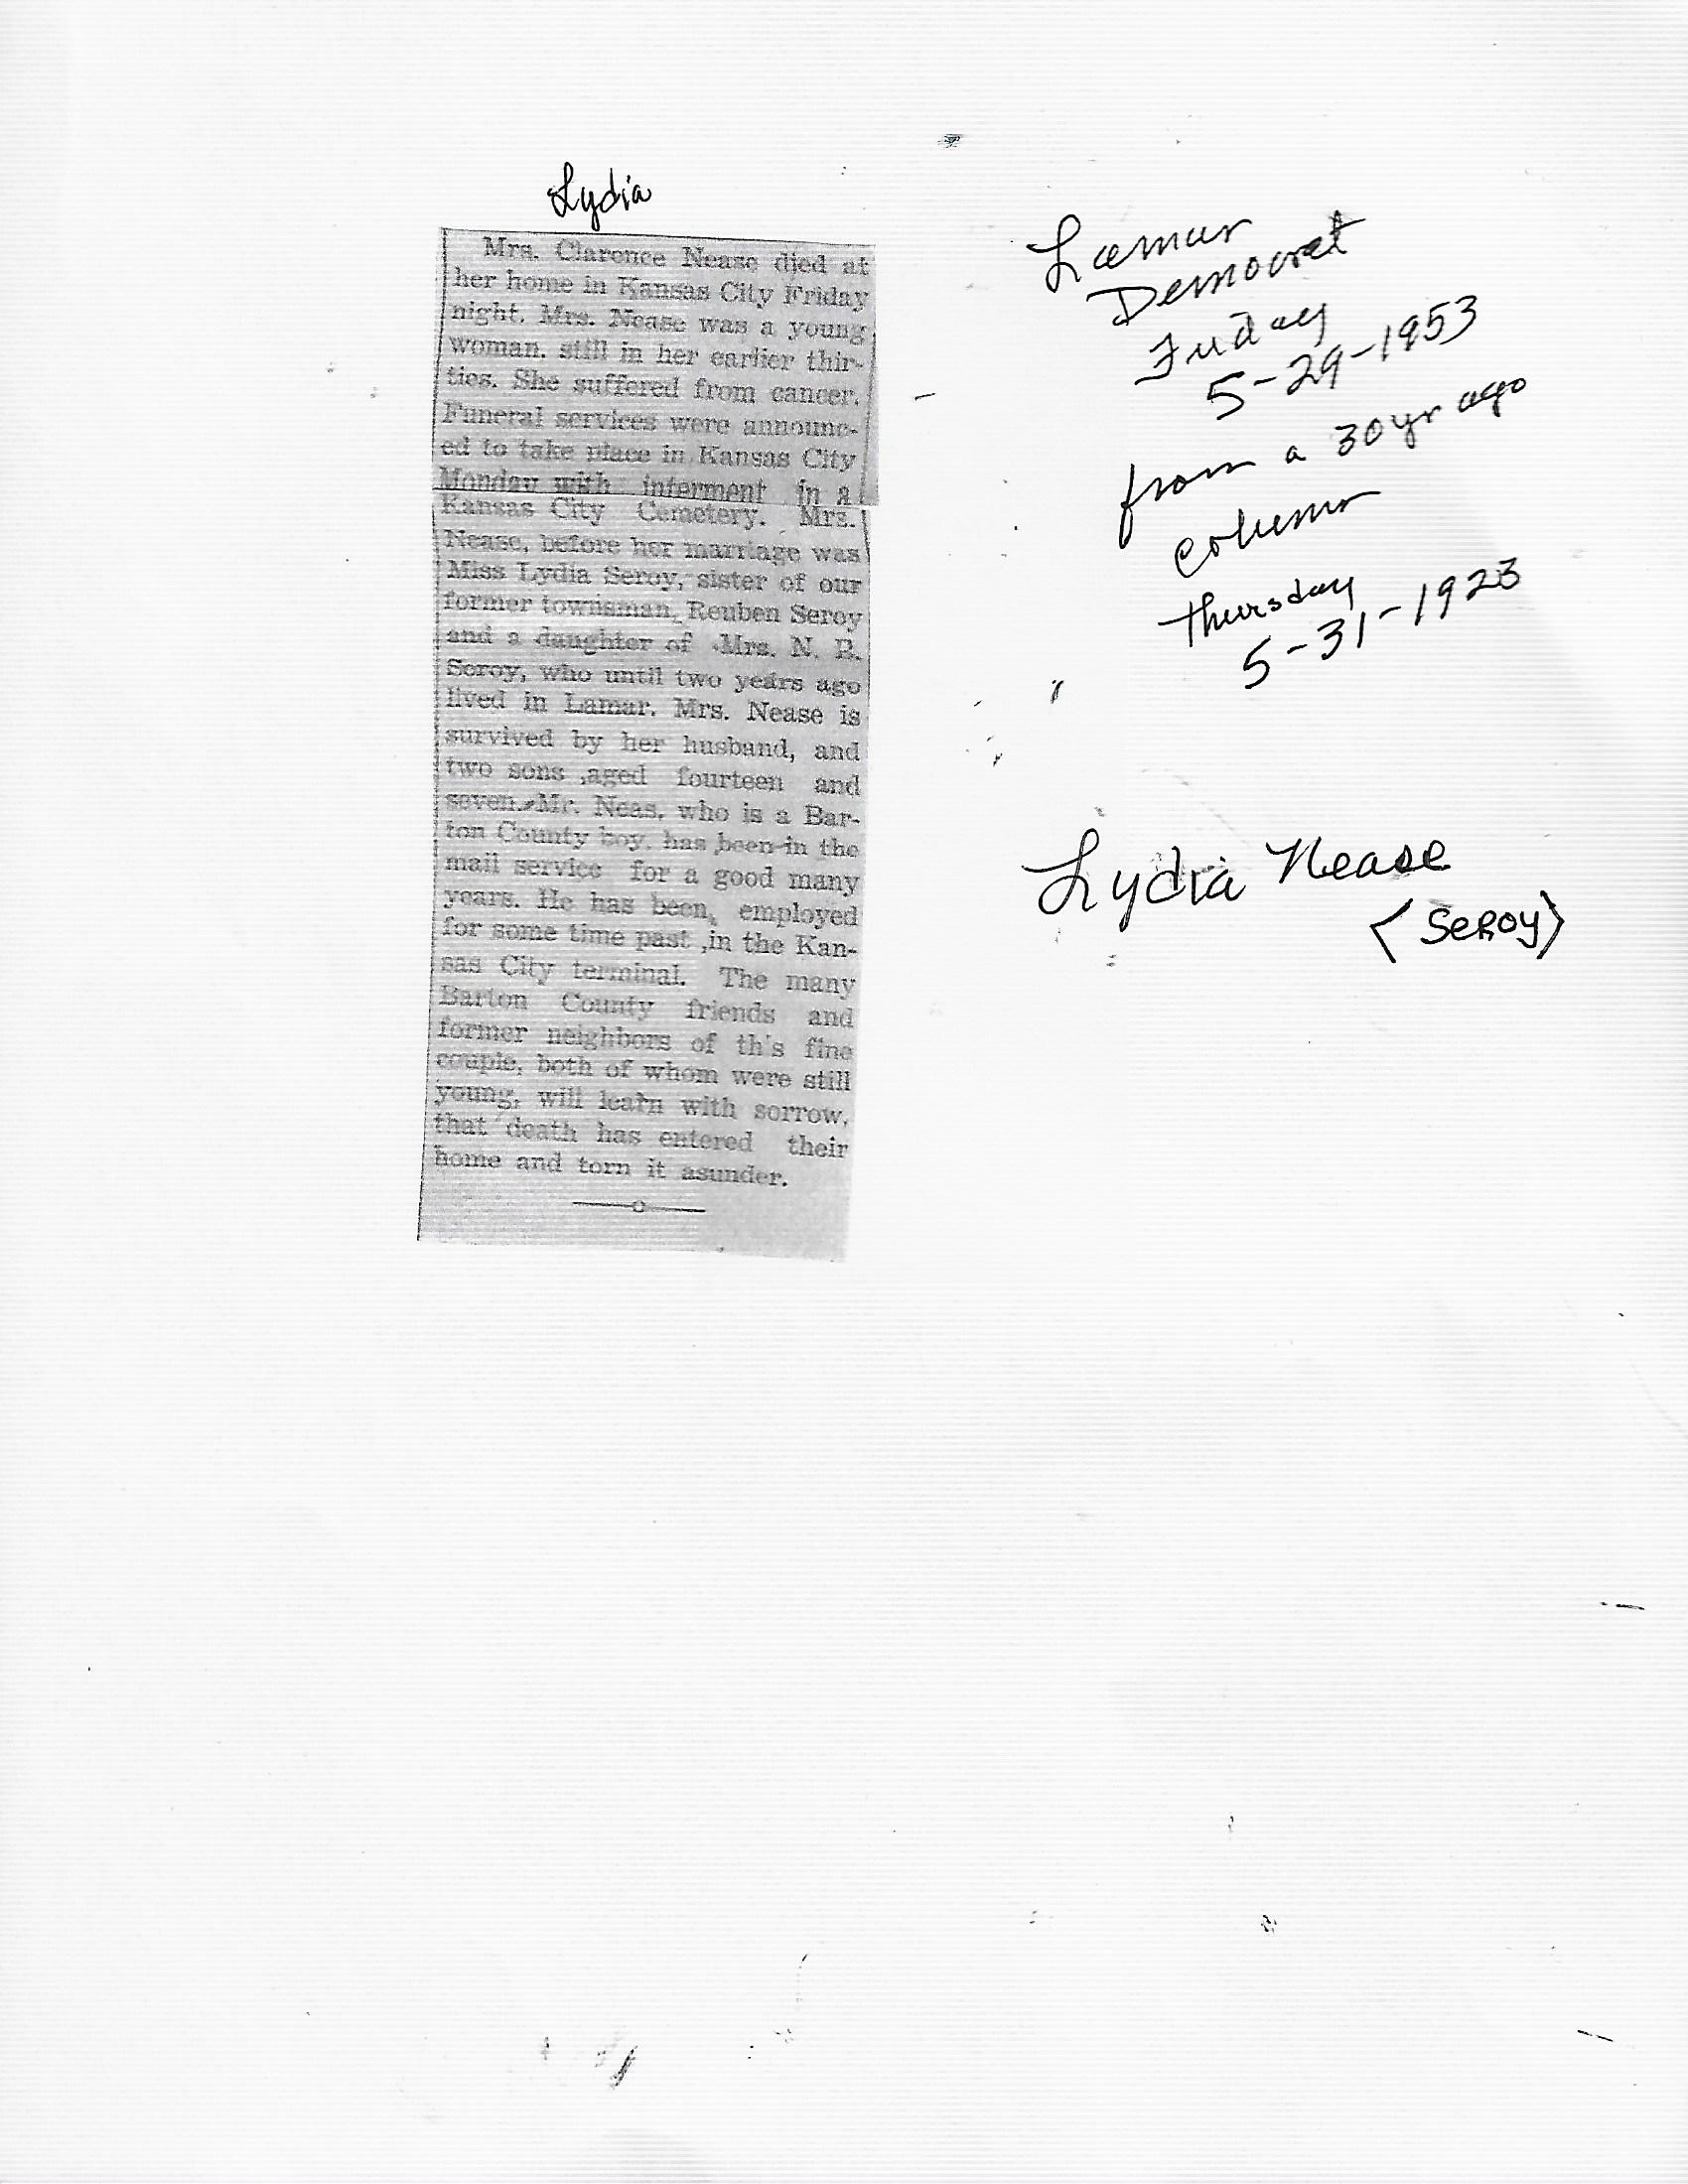 Lydia
Mrs. Clarence Nease died at
her home in Kansas City Friday
night. Mrs. Nease was a young
woman, still in her earlier thir-
ties. She suffered from cancer.
Funeral services were announc-
ed to take place in Kansas City
Monday with interment in a
Kansas City Cemetery. Mrs.
Nease, before her marriage was
Miss Lydia Seroy, sister of our
former townsman, Reuben Seroy
and a daughter of Mrs. N. B.
Seroy, who until two years ago
lived in Lamar. Mrs. Nease is
survived by her husband, and
two sons ,aged fourteen and
seven. Mr. Neas, who is a Bar-
ton County boy, has been in the
mail service for a good many
years. He has been, employed
for some time past ,in the Kan-
sas City terminal. The many
Barton County friends and
former neighbors of th's fine
couple, both of whom were still
young, will learn with sorrow,
that death has entered their
home and torn it asunder.
Lamar
Democrat
Friday
5-29-1953
from a 30 yr ago
column
thursday
5-31-1923
Lydia Nease
(Seroy)